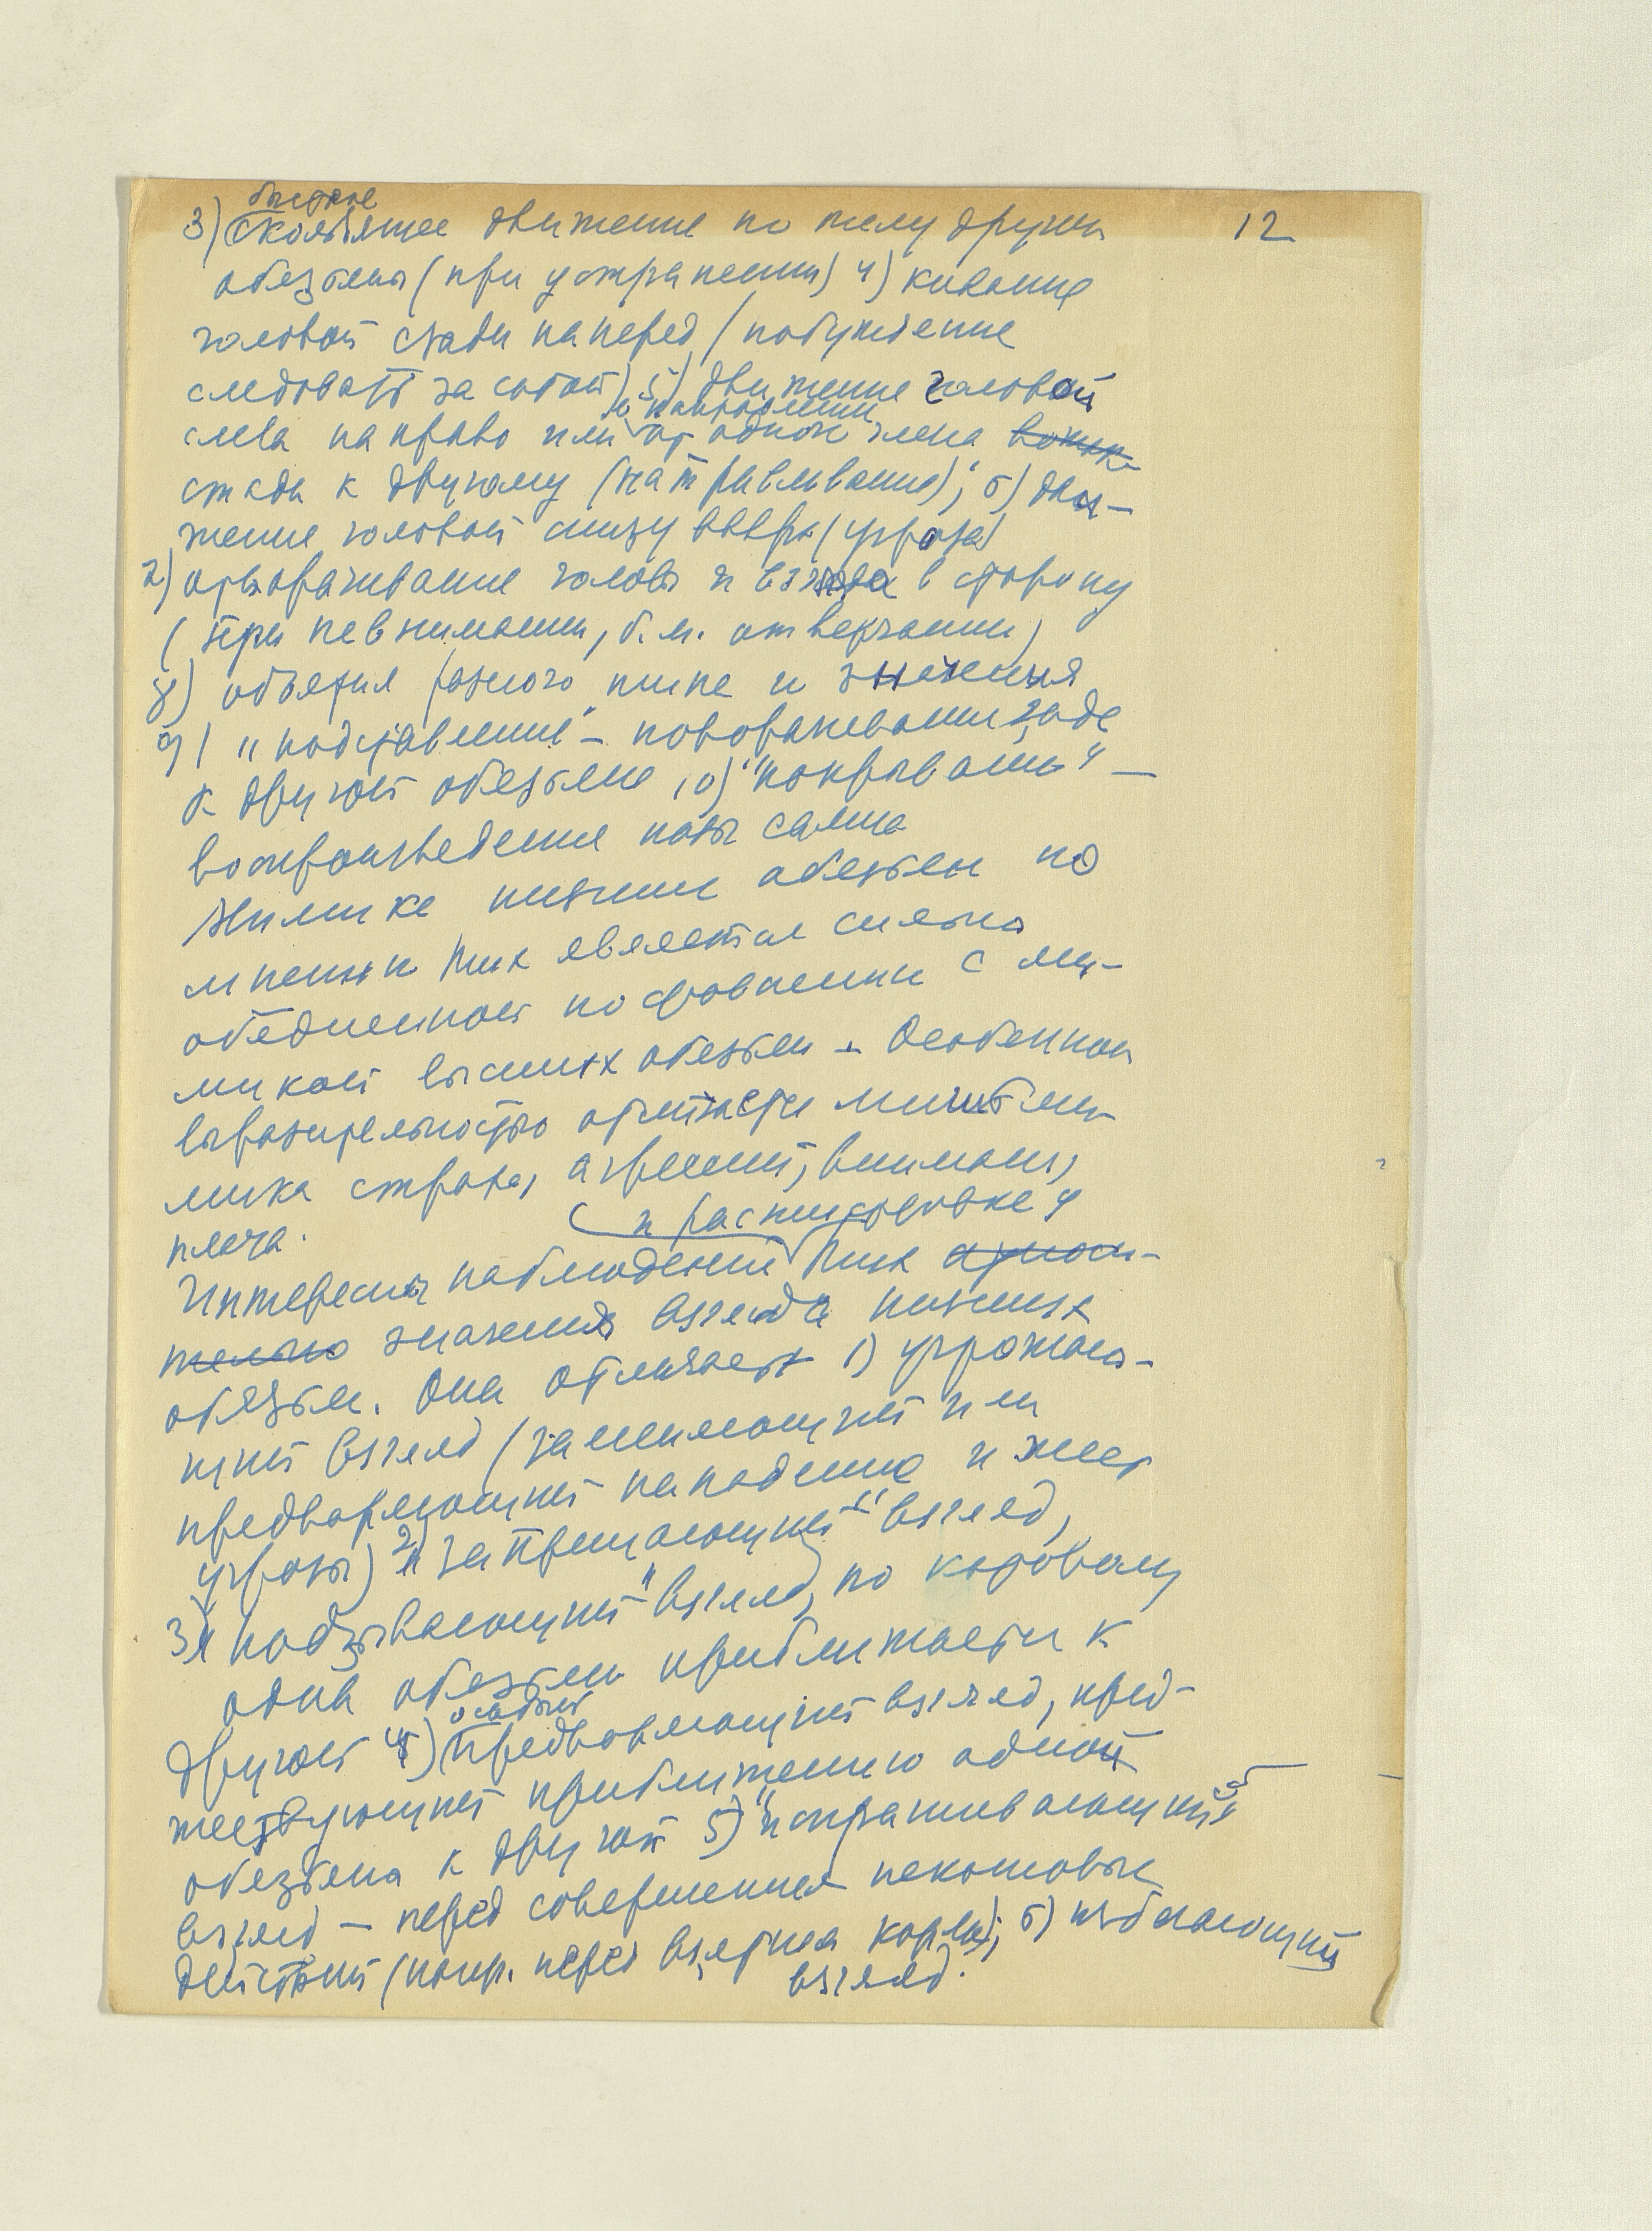 12
быстрое
3) скользящее движение по телу другой
обезьяны (при устрашении) 4) кивание
головой сзади наперед (побуждение
следовать за собой) 5) движение головой
в направлении
слева направо или от одного члена
стада к другому (натравливание); 6) дви-
жение головой снизу вверх (угроза)
7) отворачивание головы и взгляда в сторону
(при невнимании, б.м. отвержении)
8) объятия разного типа и значения
9) "подставление" – поворачивание зада
к другой обезьяне 10) "покрывание" –
воспроизведение позы самца
Мимика низших обезьян по
мнению Тих является сильно
обедненной по сравнению с ми-
микой высших обезьян – Особенной
выразительностью отличается лишь ми-
мика страха, агрессии, внимания,
плача.
и расшифровке у
Интересны наблюдения Тих относи-
тельно значения взгляда низших
обезьян. Она отличает 1) угрожаю-
щий взгляд (заменяющий или
предваряющий нападение и жест
угрозы) 2) "запрещающий" взгляд,
3) "подзывающий" взгляд, по которому
одна обезьяна приближается к
особый
другой 4) предваряющий взгляд, пред-
шествующий приближению одной
обезьяны к другой 5) "испрашивающий"
взгляд – перед совершением некоторых
действий (напр. перед взятием корма); 6) избегающий
взгляд.